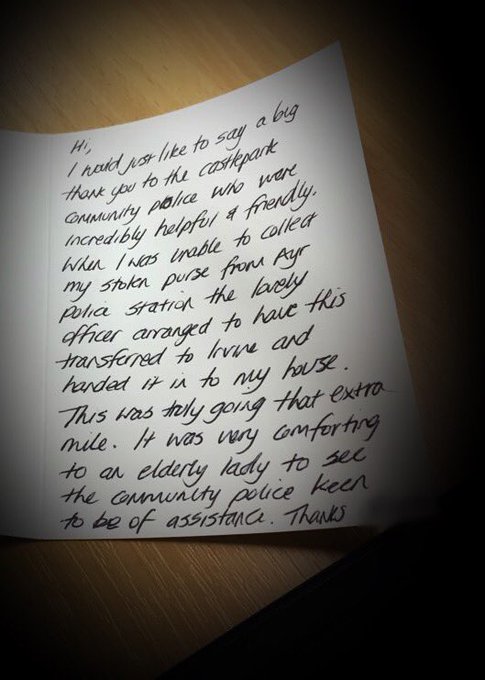 Hi,
I would just like to say a big
thank you to the castlepark
community police who were
incredibly helpful & friendly.
When I was unable to collect
my stolen purse from Ayr
police station the lovely
officer arranged to have this
transferred to Irvine and
handed it in to my house.
This was truly going that extra
mile. It was very comforting
to an elderly lady to see
the community police keen
to be of assistance. Thanks